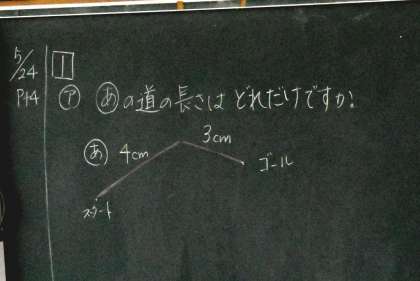 5/24
P14
1
ア あの道の長さは どれだけですか。
あ 4cm 3cm
スタート ゴール